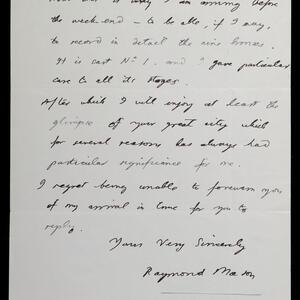 I am arriving before
the week end – to be able, if I may,
to record in detail the nine bronzes.
It is cast No 1. and I gave particular
care to all its stages.
After which I will enjoy at least the
glimpse of your great city which
for several reasons has always had
particular significance for me.
I regret being unable to forewarn you
of my arrival in time for you to
reply.
Yours Very Sincerely
Raymond Mason